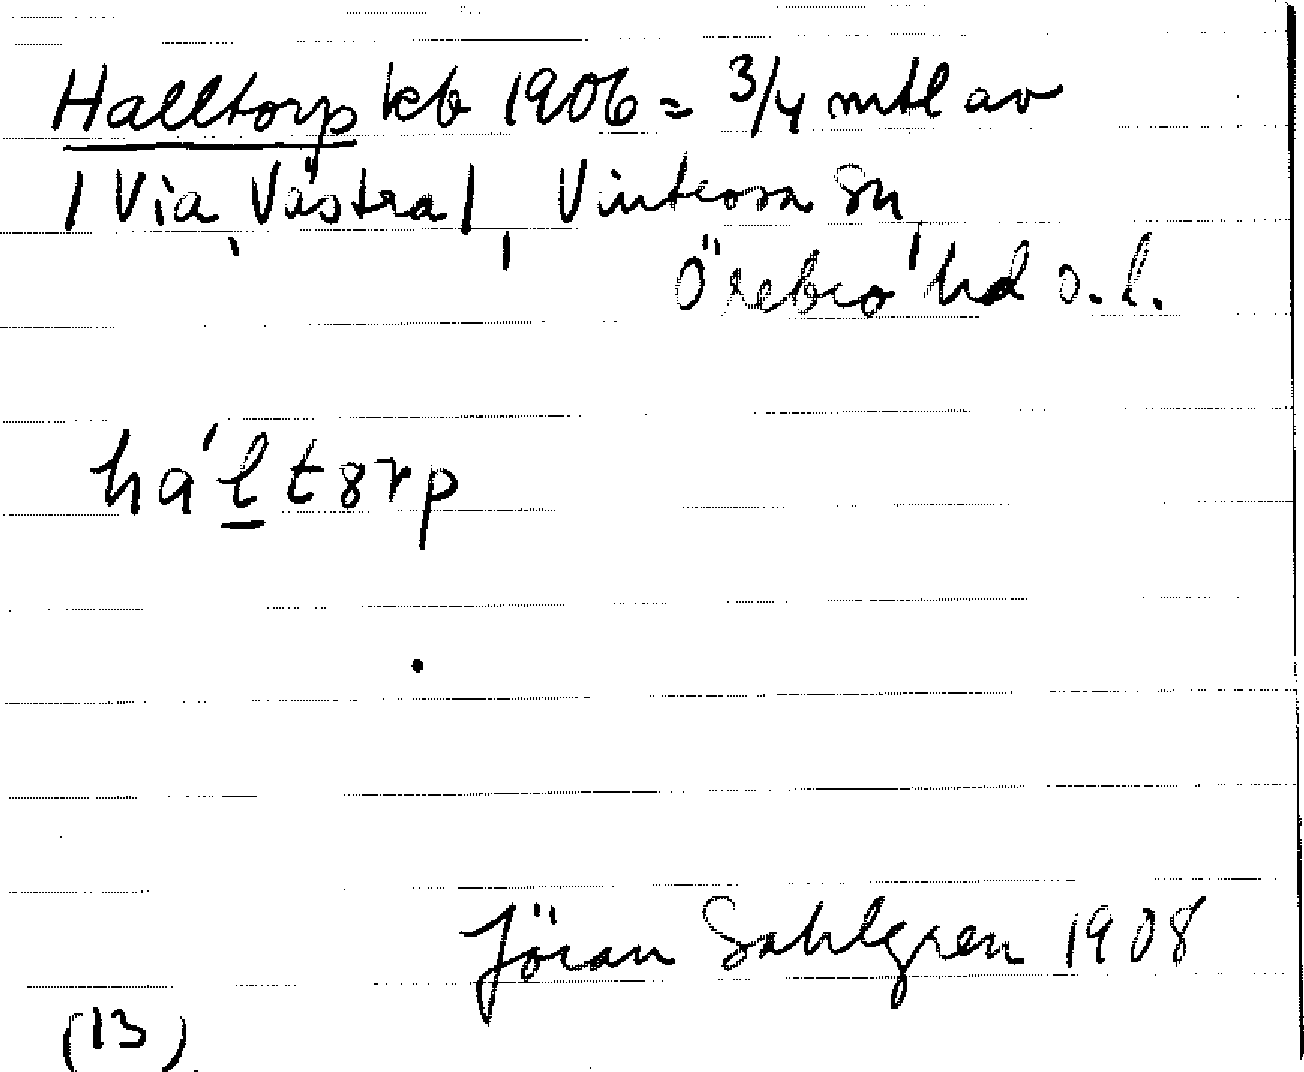 Halltorp kb 1906 = 3/4 mtl av
| Via, Västra |, Vintrosa sn,
Örebro hd ö. l.
há'l̲tsrp
Jöran Sahlgren 1908
(13)